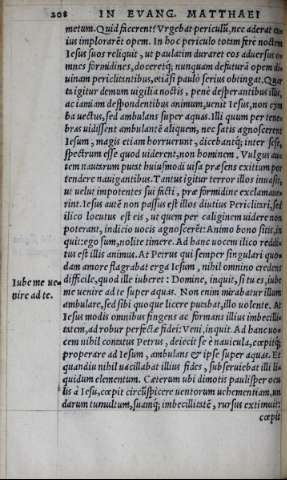 208 IN EVANG. MATTHAEI
metum. Quid facerent? Vrgebat periculũ, nec aderat cu
ius implorarẽt opem. In hoc periculo totam ferè noctem
Iesus suos reliquit, ut paulatim duraret eos aduersus o=
mnes formidines, doceretq; nunquam defuturã opem di=
uinam periclitantibus, etiã si paulò serius obtingat. Quar
ta igitur demum uigilia noctis, penè desperantibus illis,
ac iamiam despondentibus animum, uenit Iesus, non cym
ba uectus, sed ambulans super aquas. Illi quum per tene=
bras uidissent ambulantẽ aliquem, nec satis agnoscerent
Iesum, magis etiam horruerunt, dicebantq; inter sese,
spectrum esse quod uiderent, non hominem. Vulgus au=
tem nautarum putat huiusmodi uisa præsens exitium por
tendere nauigantibus. Tantus igitur terror illos inuasit,
ut uelut impotentes sui facti, præ formidine exclamaue=
rint. Iesus autẽ non passus est illos diutius periclitari, sed
ilico locutus est eis, ut quem per caliginem uidere non
poterant, indicio uocis agnoscerẽt: Animo bono sitis, in
quit: ego sum, nolite timere. Ad hanc uocem ilico reddi=
tus est illis animus. At Petrus qui semper singulari quo=
dam amore flagrabat erga Iesum, nihil omnino credens
difficile, quod ille iuberet: Domine, inquit, si tu es, iube
Iube me ue
nire ad te.
me uenire ad te super aquas. Non enim mirabatur illum
ambulare, sed sibi quoque licere putabat, illo uolente. At
Iesus modis omnibus fingens ac formans illius imbecilli=
tatem, ad robur perfectæ fidei: Veni, inquit. Ad hanc uo=
cem nihil contatus Petrus, deiecit se è nauicula, cœpitq;
properare ad Iesum, ambulans & ipse super aquas. Et
quandiu nihil uacillabat illius fides, subseruiebat illi li=
quidum elementum. Cæterum ubi dimotis paulisper ocu
lis à Iesu, cœpit circũspicere uentorum uehementiam, un
darum tumultum, suamq; imbecillitatẽ, rursus extimuit:
cœpit